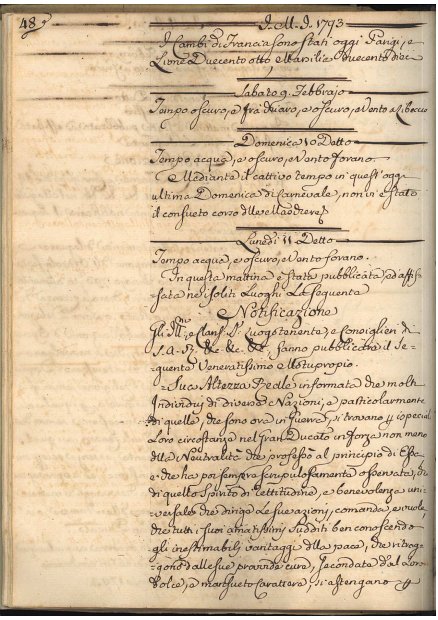 48
I. M. I. 1793
I Cambi di Francia sono stati oggi Parigi, e
Lione Duecento otto e Marsilia Duecento dieci
Sabato 9. Febbrajo
Tempo oscuro, e fra chiaro, e oscuro, e Vento a Libeccio
Domenica 10 Detto
Tempo acqua, e oscuro, e Vento forano.
Mediante il cattivo tempo in quest'oggi
ultima Domenica di Carnevale, non vi è stato
il consueto corso delle Maschere
Lunedì 11 Detto
Tempo acqua, e oscuro, e Vento forano.
In questa mattina è stata pubblicata, ed affis-
sata ne soliti Luoghi La seguente
Notificazione
Gl' Ill.mi e Clariss.i SS.i Luogotenente, e Consiglieri di
S. A. R. &c. &c. &c., fanno pubblicare il Se-
guente Veneratissimo Motuproprio.
Sua Altezza Reale informata che molti
Individui di diverse Nazioni, e particolarmente
di quelle, che sono ora in Guerra, si trovano per speciali
Loro circostanze nel Gran Ducato in forza non meno
della Neutralità che professò al principio di Essa
e che ha poi sempre scrupolosamente osservata, che
di quello Spirito di rettitudine, e benevolenza uni-
versale che dirige Le sue azioni, comanda, e vuole
che tutti i suoi amatissimi Sudditi ben conoscendo
gli inestimabili vantaggi della pace, che ritrag-
gono dalle sue provvide cure, secondate dal Loro
dolce, e mansueto carattere, si astengano